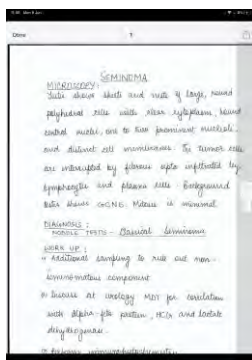 Done
SEMINOMA
MICROSCOPY:
shows sheets and nests of large, round
polyhedral cells with clear cytoplasm, round
central nuclei, one to two prominent nucleoli
and distinct cell membranes. The tumor cells
are interrupted by fibrous septa infiltrated by
lymphocytes and plasma cells. Background
testis shows GCNIS. Mitosis is minimal
DIAGNOSIS:
TESTIS - Classical Seminoma
WORK UP:
Additional sampling to rule out non-
seminomatous component
Discuss at urology MDT for correlation
with alpha-feto protein, HCG and lactate
dehydrogenase.
immunohistochemistry